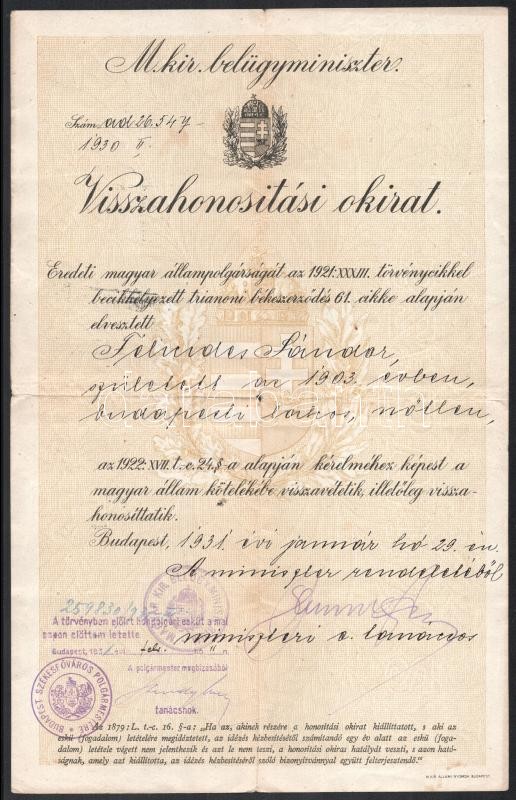 M. kir. belügyminiszter.
Szám ad 26.547
1930 II.
Visszahonositási okirat.
Eredeti magyar állampolgárságát az 1921:XXXIII. törvénycikkel
becikkelyezett trianoni békeszerződés 61. cikke alapján
elvesztett
Sándor,
született az 1903. évben,
budapesti lakos, nőtlen,
az 1922:XVII. t.-c. 24.§-a alapján kérelméhez képest a
magyar állam kötelékébe visszavétetik, illetőleg vissza-
honosíttatik.
Budapest, 1931. évi január hó 29. én.
A miniszter rendeletéből
miniszteri o. tanácsos
A törvényben előírt honpolgári esküt a mai
napon előttem letette
Budapest, 193 évi hó n.
A polgármester megbízásából
tanácsnok.
BUDAPEST SZÉKESFŐVÁROS POLGÁRMESTERE
Az 1879: L. t.-c. 16. §-a: „Ha az, akinek részére a honositási okirat kiállíttatott, s aki az
eskü (fogadalom) letételére megidéztetett, az idézés kézbesítésétől számítandó egy év alatt az eskü (foga-
dalom) letétele végett nem jelentkezik és azt le nem teszi, a honositási okirat hatályát veszti, s azon ható-
ságnak, amely azt kiállította, az idézés kézbesítéséről szóló bizonyítvánnyal együtt felterjesztendő."
M. KIR. ÁLLAMI NYOMDA. BUDAPEST.